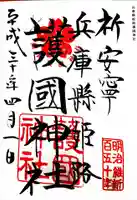 祈安寧
兵庫縣姫路
護國神社
平成三十年四月一日
明治維新
百五十年